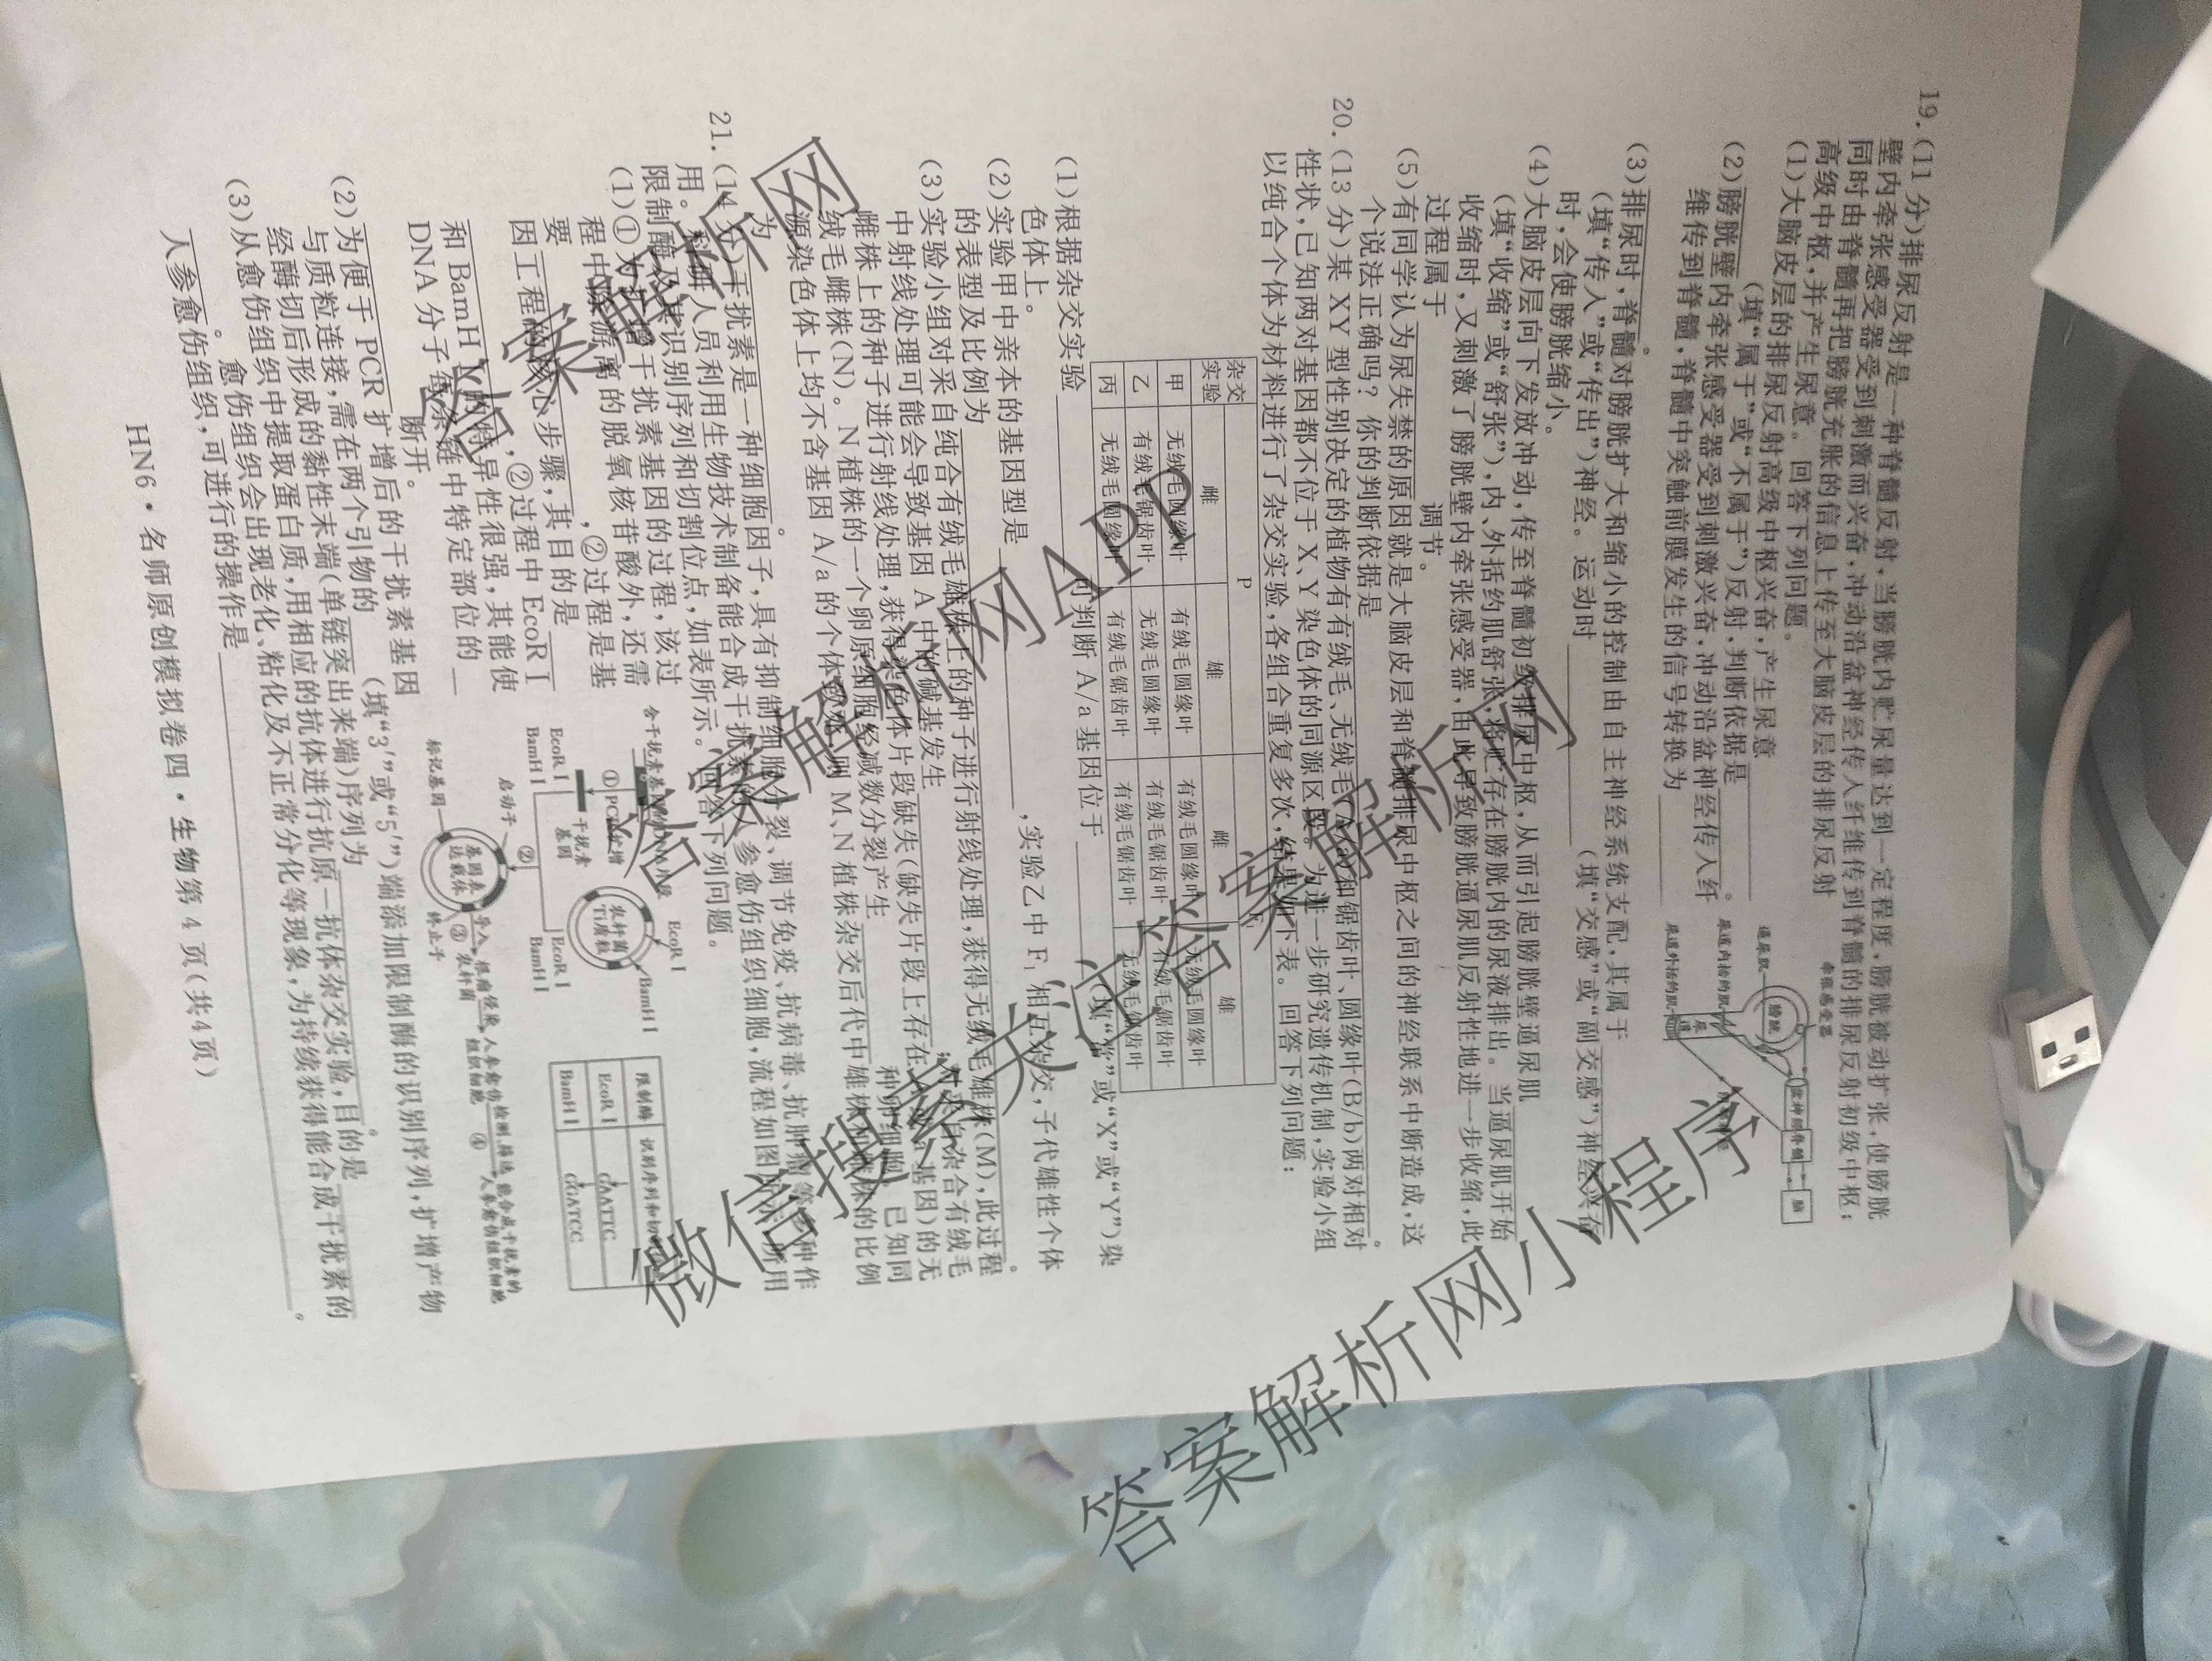 19.(11分)排尿反射是一种脊髓反射,当膀胱内贮尿量达到一定程度,膀胱被动扩张,使膀胱
壁内牵张感受器受到刺激而兴奋,冲动沿盆神经传入纤维传到脊髓的排尿反射初级中枢;
同时由脊髓再把膀胱充胀的信息上传至大脑皮层的排尿反射
高级中枢,并产生尿意。回答下列问题。
(1)大脑皮层的排尿反射高级中枢兴奋,产生尿意
(填“属于”或“不属于”)反射,判断依据是
。
(2)膀胱壁内牵张感受器受到刺激兴奋,冲动沿盆神经传入纤
维传到脊髓,脊髓中突触前膜发生的信号转换为
。
牵张感受器
逼尿肌
膀胱
尿道内括约肌
尿道外括约肌
尿道
盆神经
脊髓
脑
(3)排尿时,脊髓对膀胱扩大和缩小的控制由自主神经系统支配,其属于
(填“传入”或“传出”)神经。运动时
(填“交感”或“副交感”)神经兴奋
时,会使膀胱缩小。
(4)大脑皮层向下发放冲动,传至脊髓初级排尿中枢,从而引起膀胱壁逼尿肌
(填“收缩”或“舒张”),内、外括约肌舒张,将贮存在膀胱内的尿液排出。当逼尿肌开始
收缩时,又刺激了膀胱壁内牵张感受器,由此导致膀胱逼尿肌反射性地进一步收缩,此
过程属于 调节。
(5)有同学认为尿失禁的原因就是大脑皮层和脊髓排尿中枢之间的神经联系中断造成,这
个说法正确吗?你的判断依据是
。
20.(13分)某XY型性别决定的植物有有绒毛、无绒毛(A/a)和锯齿叶、圆缘叶(B/b)两对相对
性状,已知两对基因都不位于X、Y染色体的同源区段。为进一步研究遗传机制,实验小组
以纯合个体为材料进行了杂交实验,各组合重复多次,结果如下表。回答下列问题:
杂交实验 P F₁
雌 雄 雌 雄
甲 无绒毛圆缘叶 有绒毛圆缘叶 有绒毛圆缘叶 无绒毛圆缘叶
乙 有绒毛锯齿叶 无绒毛圆缘叶 有绒毛锯齿叶 有绒毛锯齿叶
丙 无绒毛圆缘叶 有绒毛锯齿叶 有绒毛锯齿叶 无绒毛锯齿叶
(1)根据杂交实验 可判断A/a基因位于 (填“常”或“X”或“Y”)染
色体上。
(2)实验甲中亲本的基因型是 ,实验乙中F₁相互杂交,子代雄性个体
的表型及比例为 。
(3)实验小组对采自纯合有绒毛雄株上的种子进行射线处理,获得无绒毛雄株(M),此过程
中射线处理可能会导致基因A中的碱基发生 ;对采自杂合有绒毛
雌株上的种子进行射线处理,获得染色体片段缺失(缺失片段上存在 基因)的无
绒毛雌株(N)。N植株的一个卵原细胞经减数分裂产生 种卵细胞。已知同
源染色体上均不含基因A/a的个体致死,则M、N植株杂交后代中雄株和雌株的比例
为 。
21.(14分)干扰素是一种细胞因子,具有抑制细胞分裂、调节免疫、抗病毒、抗肿瘤等多种作
用。科研人员利用生物技术制备能合成干扰素的人参愈伤组织细胞,流程如图所示,所用
限制酶及其识别序列和切割位点,如表所示。回答下列问题。
(1)①对扩增干扰素基因的过程,该过
程中除游离的脱氧核苷酸外,还需
要 ,②过程是基
因工程的核心步骤,其目的是
,②过程中EcoR I
和BamH I的特异性很强,其能使
DNA分子每条链中特定部位的
断开。
①PCR扩增
干扰素基因
农杆菌Ti质粒
EcoR I
BamH I
EcoR I
BamH I
②
EcoR I
BamH I
启动子
标记基因
基因表达载体
终止子
导入
③
农杆菌
侵染
人参愈伤组织细胞
检测、筛选
④
能合成干扰素的人参愈伤组织细胞
限制酶
EcoR I GAATTC
BamH I GGATCC
(2)为便于PCR扩增后的干扰素基因
与质粒连接,需在两个引物的 (填“3′”或“5′”)端添加限制酶的识别序列,扩增产物
经酶切后形成的黏性末端(单链突出来端)序列为 。
(3)从愈伤组织中提取蛋白质,用相应的抗体进行抗原—抗体杂交实验,目的是
。愈伤组织会出现老化、粘化及不正常分化等现象,为持续获得能合成干扰素的
人参愈伤组织,可进行的操作是 。
HN6·名师原创模拟卷四·生物第4页(共4页)
答案解析网APP
微信搜索关注答案解析网
答案解析网小程序